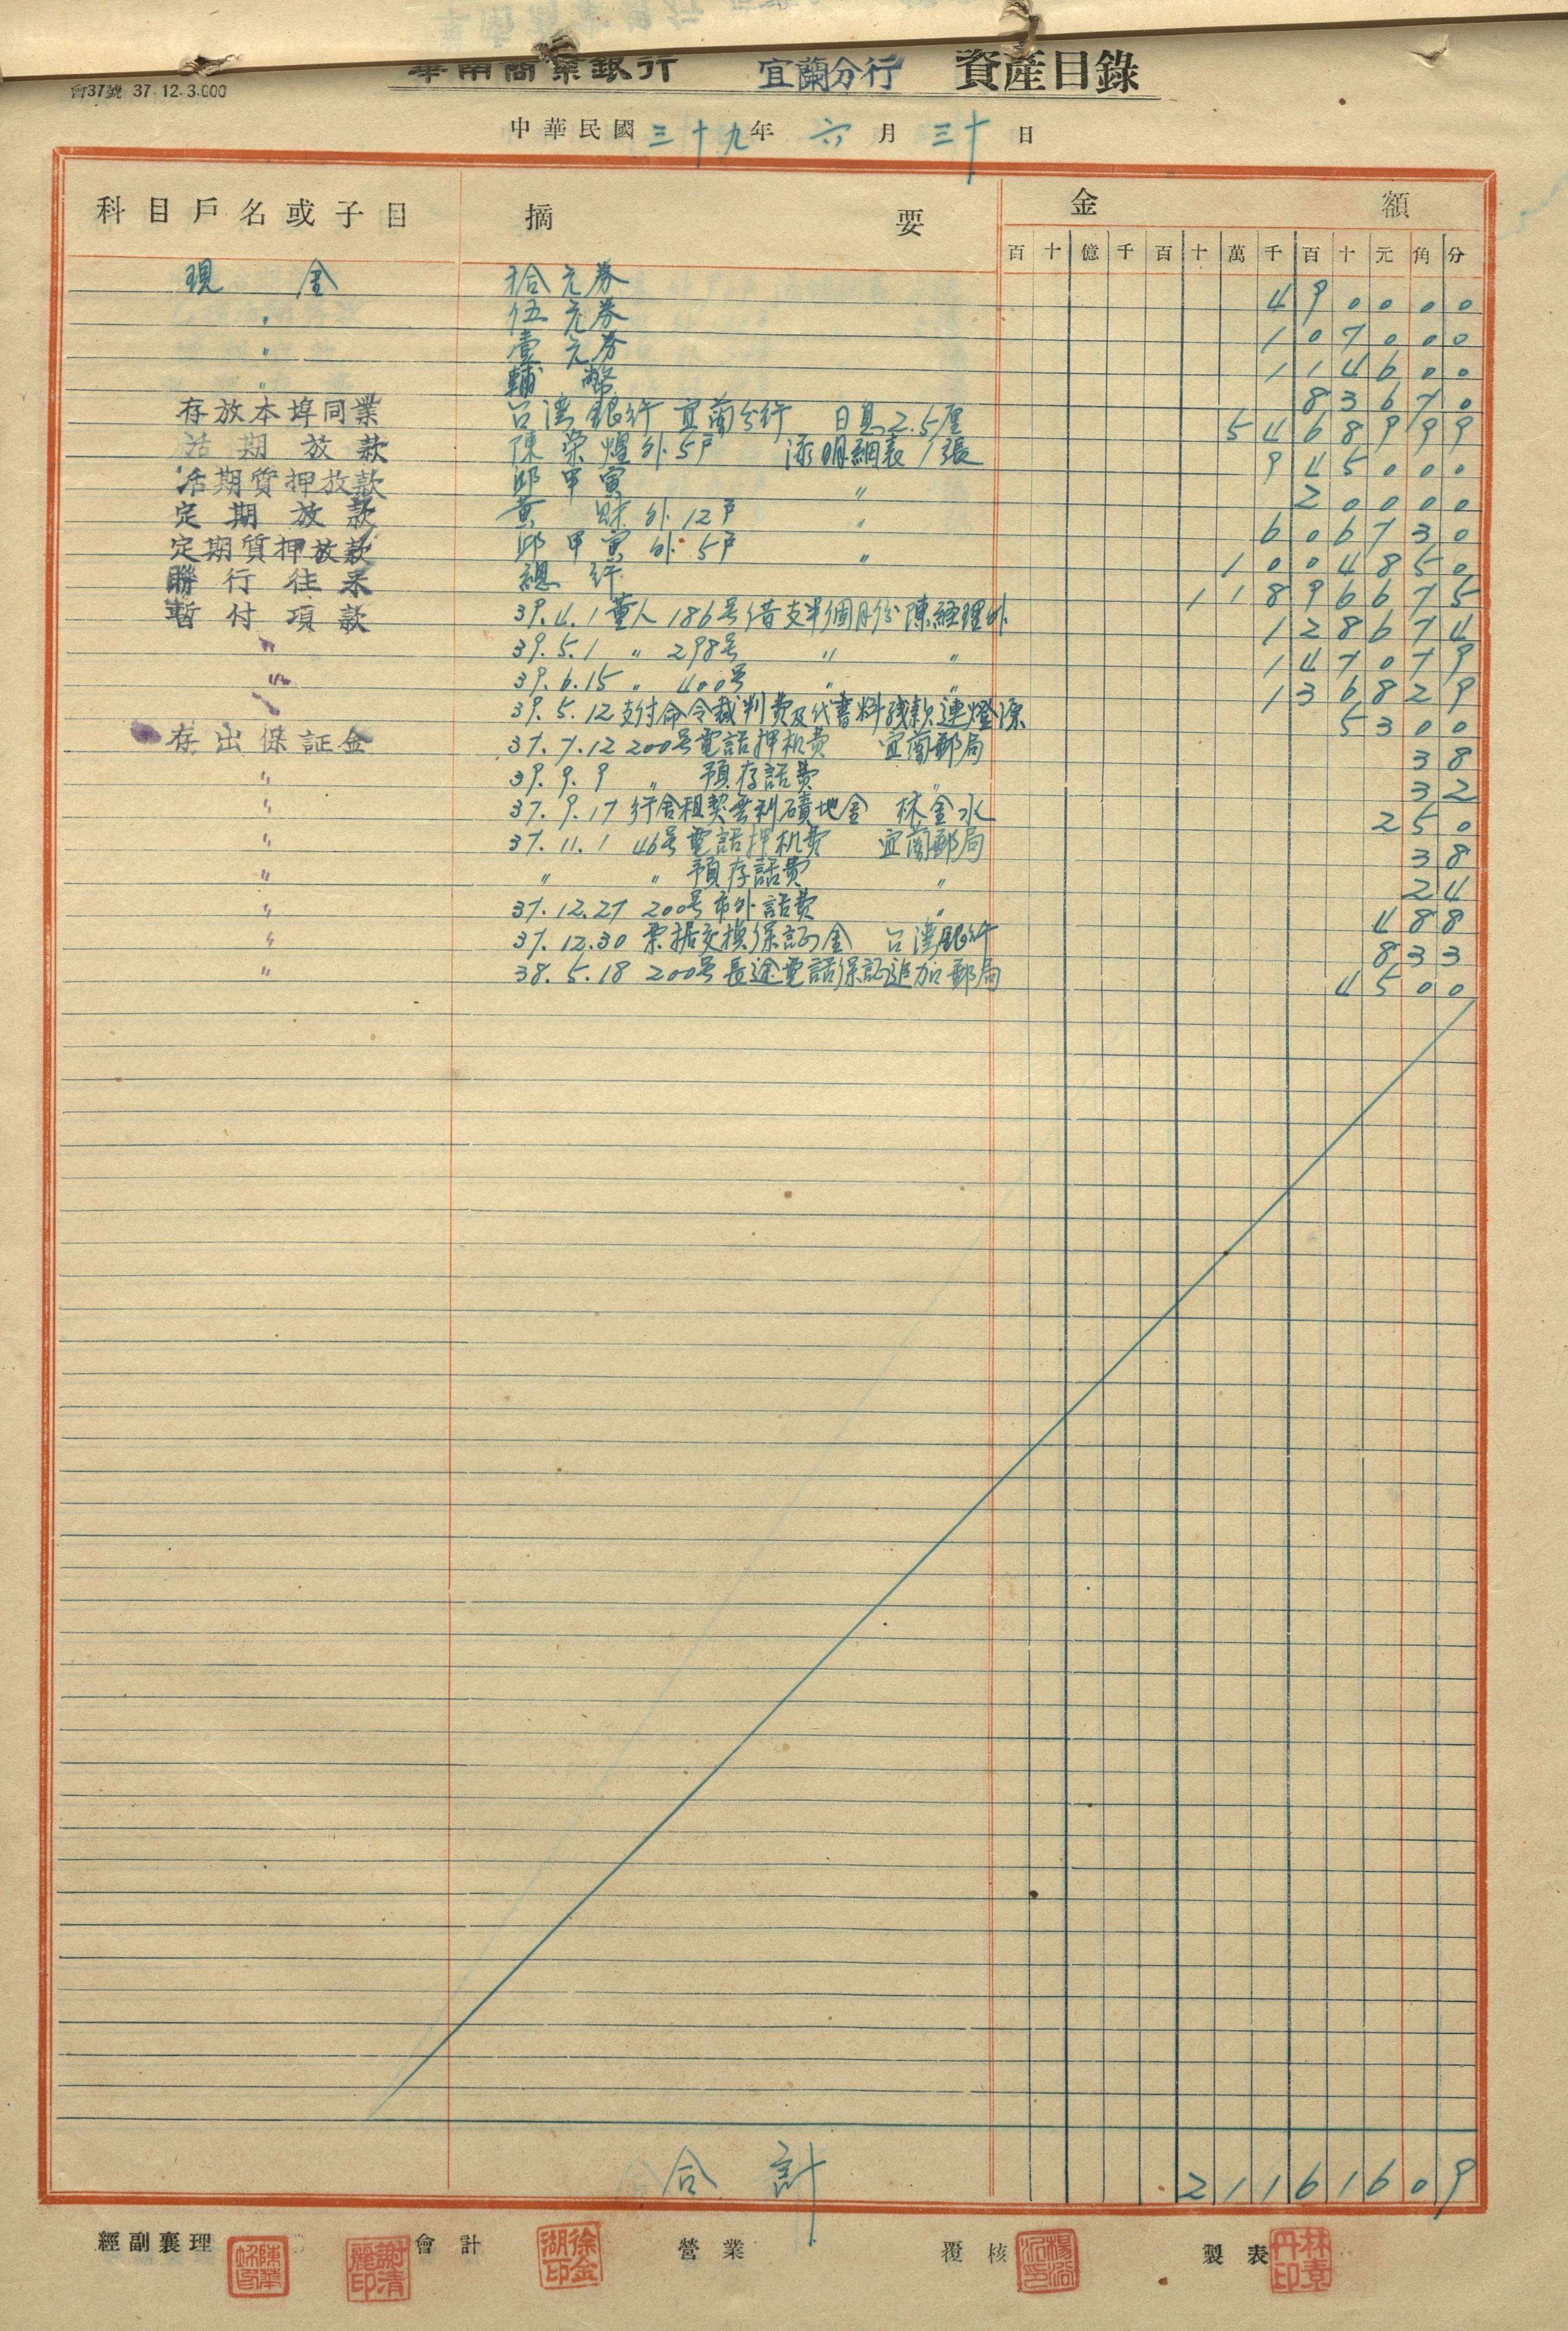 會37號 37.12.3.000
華南商業銀行 宜蘭分行 資產目錄
中華民國三十九年六月三十日
科目戶名或子目 摘要 金額
百十億千百十萬千百十元角分
現金 拾元券 490000
〃 伍元券 107000
〃 壹元券 114600
〃 輔幣 83670
存放本埠同業 台湾銀行 宜蘭分行 日息2.5厘 5468999
活期放款 陳榮煌外5戶 添明細表1張 945000
活期質押放款 邱甲寅 〃 20000
定期放款 黃 外12戶 〃 606730
定期質押放款 邱甲寅外5戶 〃 1004850
聯行往来 總行 11896675
暫付項款 39.4.1 董人186号借支半個月份 陳經理外 128674
〃 39.5.1 〃 298号 〃 〃 147079
〃 39.6.15 〃 400号 〃 〃 136829
〃 39.5.12 支付命令裁判費及代書料殘款 連燈源 5300
存出保証金 37.7.12 200号電話押机費 宜蘭郵局 38
〃 39.9.9 〃 預存話費 〃 32
〃 37.9.17 行舍租契無利磧地金 林金水 250
〃 37.11.1 46号電話押机費 宜蘭郵局 38
〃 〃 〃 預存話費 〃 24
〃 37.12.27 200号市外話費 〃 488
〃 37.12.30 票据交換保証金 台湾銀行 833
〃 38.5.18 200号長途電話保証追加 郵局 4500
合計 21161609
經副襄理 會計 營業 覆核 製表
謝清麗印 徐金湖印 林素丹印